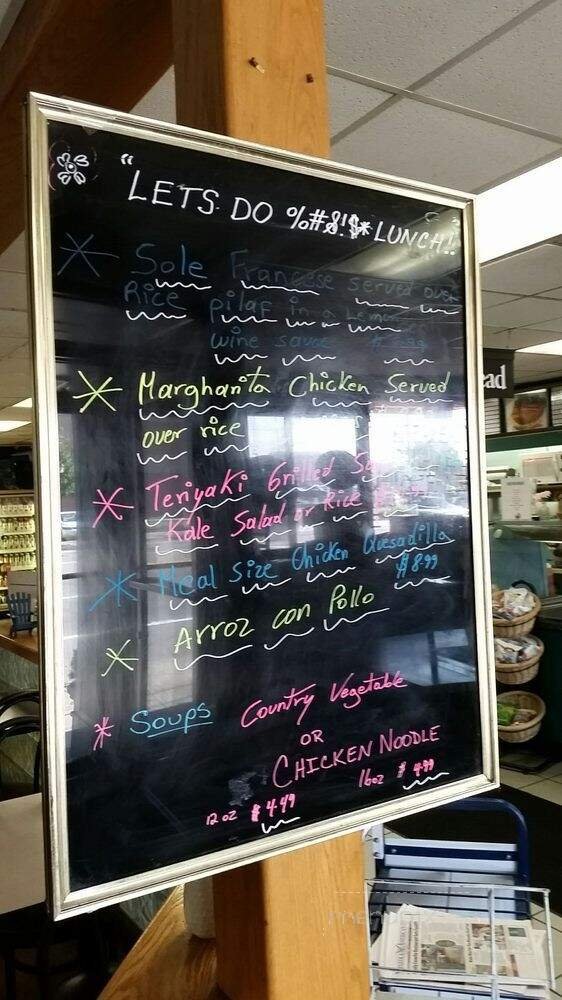 "LETS DO %#&!$* LUNCH!!
* Sole Francese served over
Rice pilaf in a Lemon
wine sauce
* Margharita Chicken Served
over rice
* Teriyaki Grilled
Kale Salad or Rice
* Meal Size Chicken Quesadilla
$8.99
* Arroz con Pollo
* Soups Country Vegetable
OR
CHICKEN NOODLE
12 oz $4.49 16oz $4.99
ad